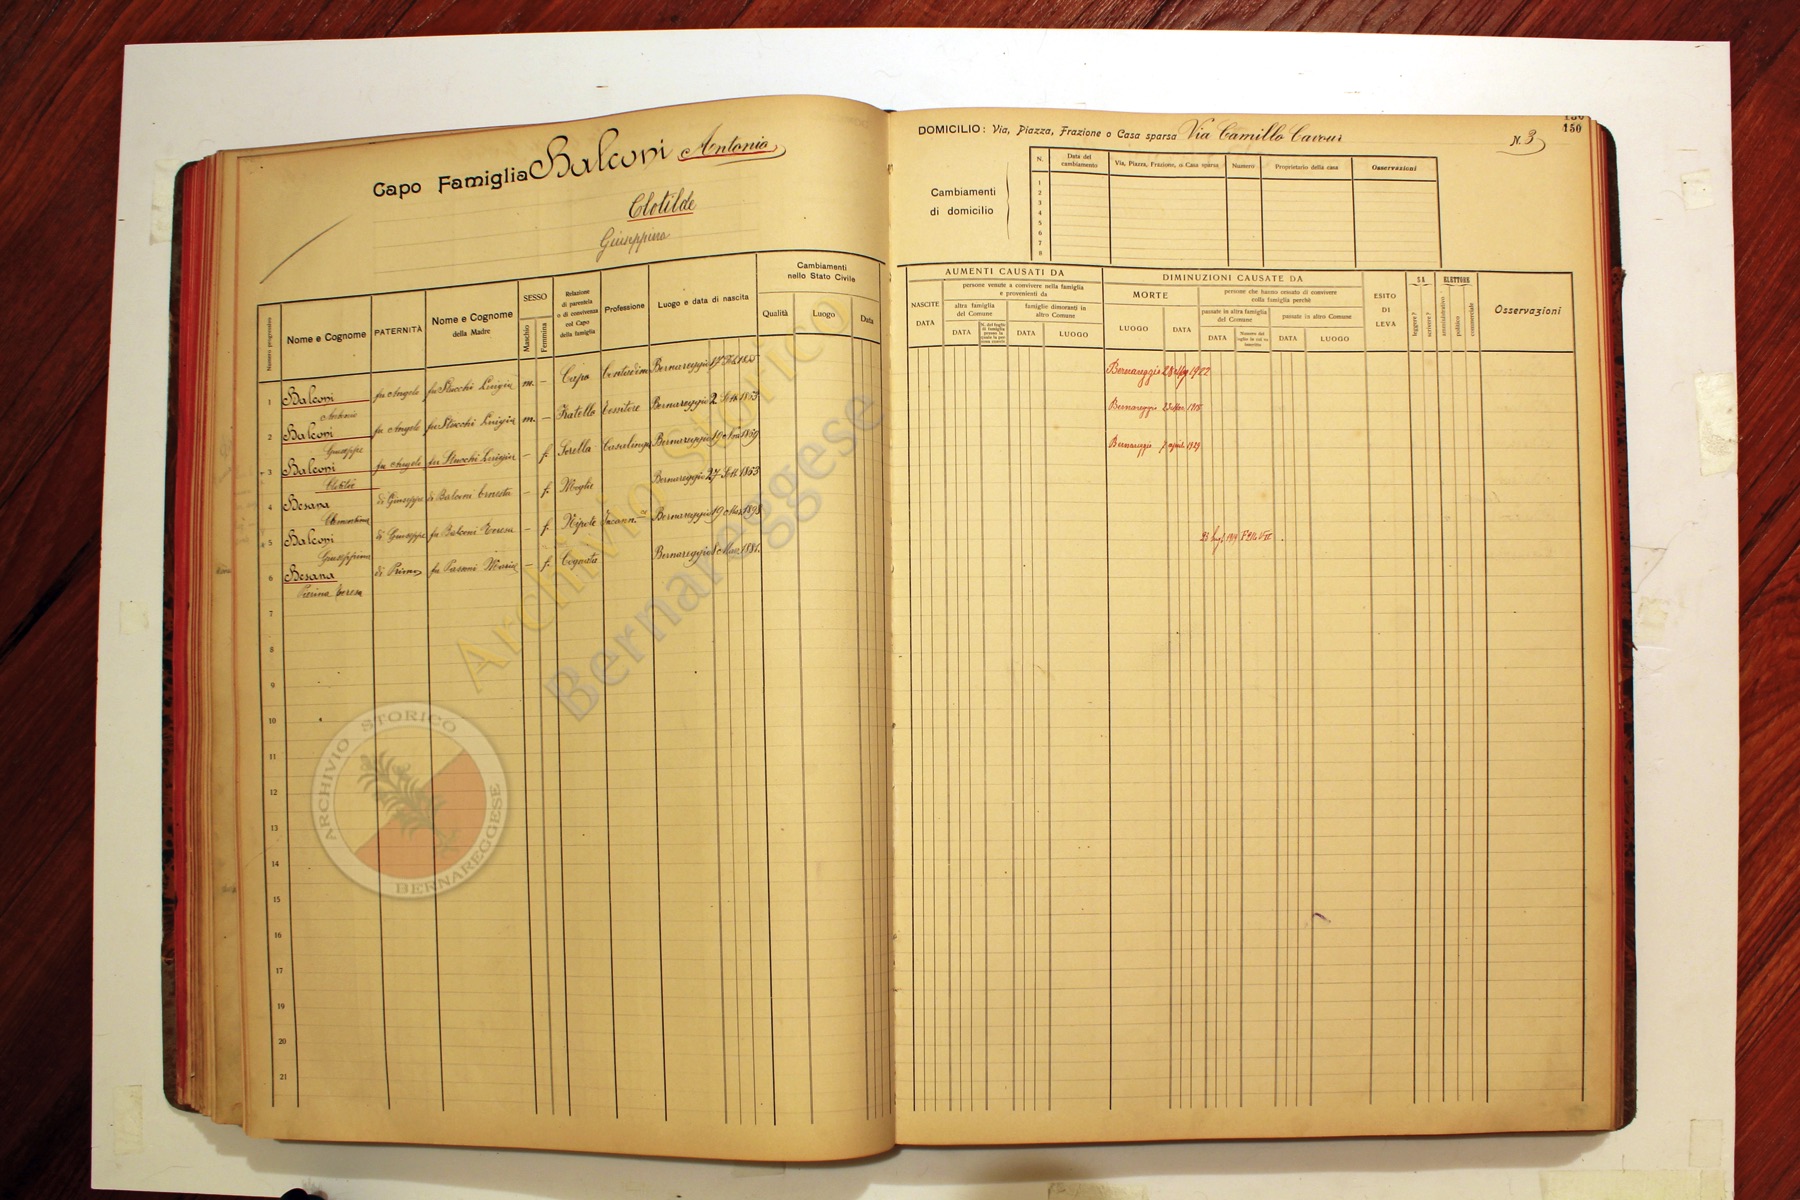 Capo Famiglia Balconi Antonio
Clotilde
Giuseppina
Numero progressivo
Nome e Cognome
PATERNITÀ
Nome e Cognome
della Madre
SESSO
Maschio
Femmina
Relazione
di parentela
o di convivenza
col Capo
della famiglia
Professione
Luogo e data di nascita
Cambiamenti
nello Stato Civile
Qualità
Luogo
Data
1 Balconi fu Angelo fu Stucchi Luigia m. — Capo Contadino Bernareggio 17 Feb. 1855
Antonio
2 Balconi fu Angelo fu Stucchi Luigia m. — Fratello Tessitore Bernareggio 2 Sett. 1853
Giuseppe
3 Balconi fu Angelo fu Stucchi Luigia — f. Sorella Casalinga Bernareggio 19 Nov. 1859
Clotilde
4 Besana di Giuseppe di Balconi Ernesta — f. Moglie Bernareggio 27 Sett. 1853
Clementina
5 Balconi di Giuseppe fu Balconi Teresa — f. Nipote Incann.ce Bernareggio 19 1898
Giuseppina
6 Besana di Primo fu Passoni Maria — f. Cognata Bernareggio 1 Mar. 1881.
Pierina Teresa
7
8
9
10
11
12
13
14
15
16
17
18
19
20
21
DOMICILIO: Via, Piazza, Frazione o Casa sparsa Via Camillo Cavour
N. 3
150
150
Cambiamenti
di domicilio
N.
Data del
cambiamento
Via, Piazza, Frazione, o Casa sparsa
Numero
Proprietario della casa
Osservazioni
1
2
3
4
5
6
7
8
AUMENTI CAUSATI DA
NASCITE
DATA
persone venute a convivere nella famiglia
e provenienti da
altra famiglia
del Comune
DATA
famiglie dimoranti in
altro Comune
DATA
LUOGO
DIMINUZIONI CAUSATE DA
MORTE
LUOGO
DATA
persone che hanno cessato di convivere
colla famiglia perchè
passate in altra famiglia
del Comune
DATA
passate in altro Comune
DATA
LUOGO
ESITO
DI
LEVA
SA
leggere?
scrivere?
ELETTORE
amministrativo
politico
commerciale
Osservazioni
Bernareggio 28 1922
Bernareggio 23 Mar. 1915
Bernareggio 7 aprile 1929
ARCHIVIO STORICO
BERNAREGGESE
Archivio Storico
Bernareggese